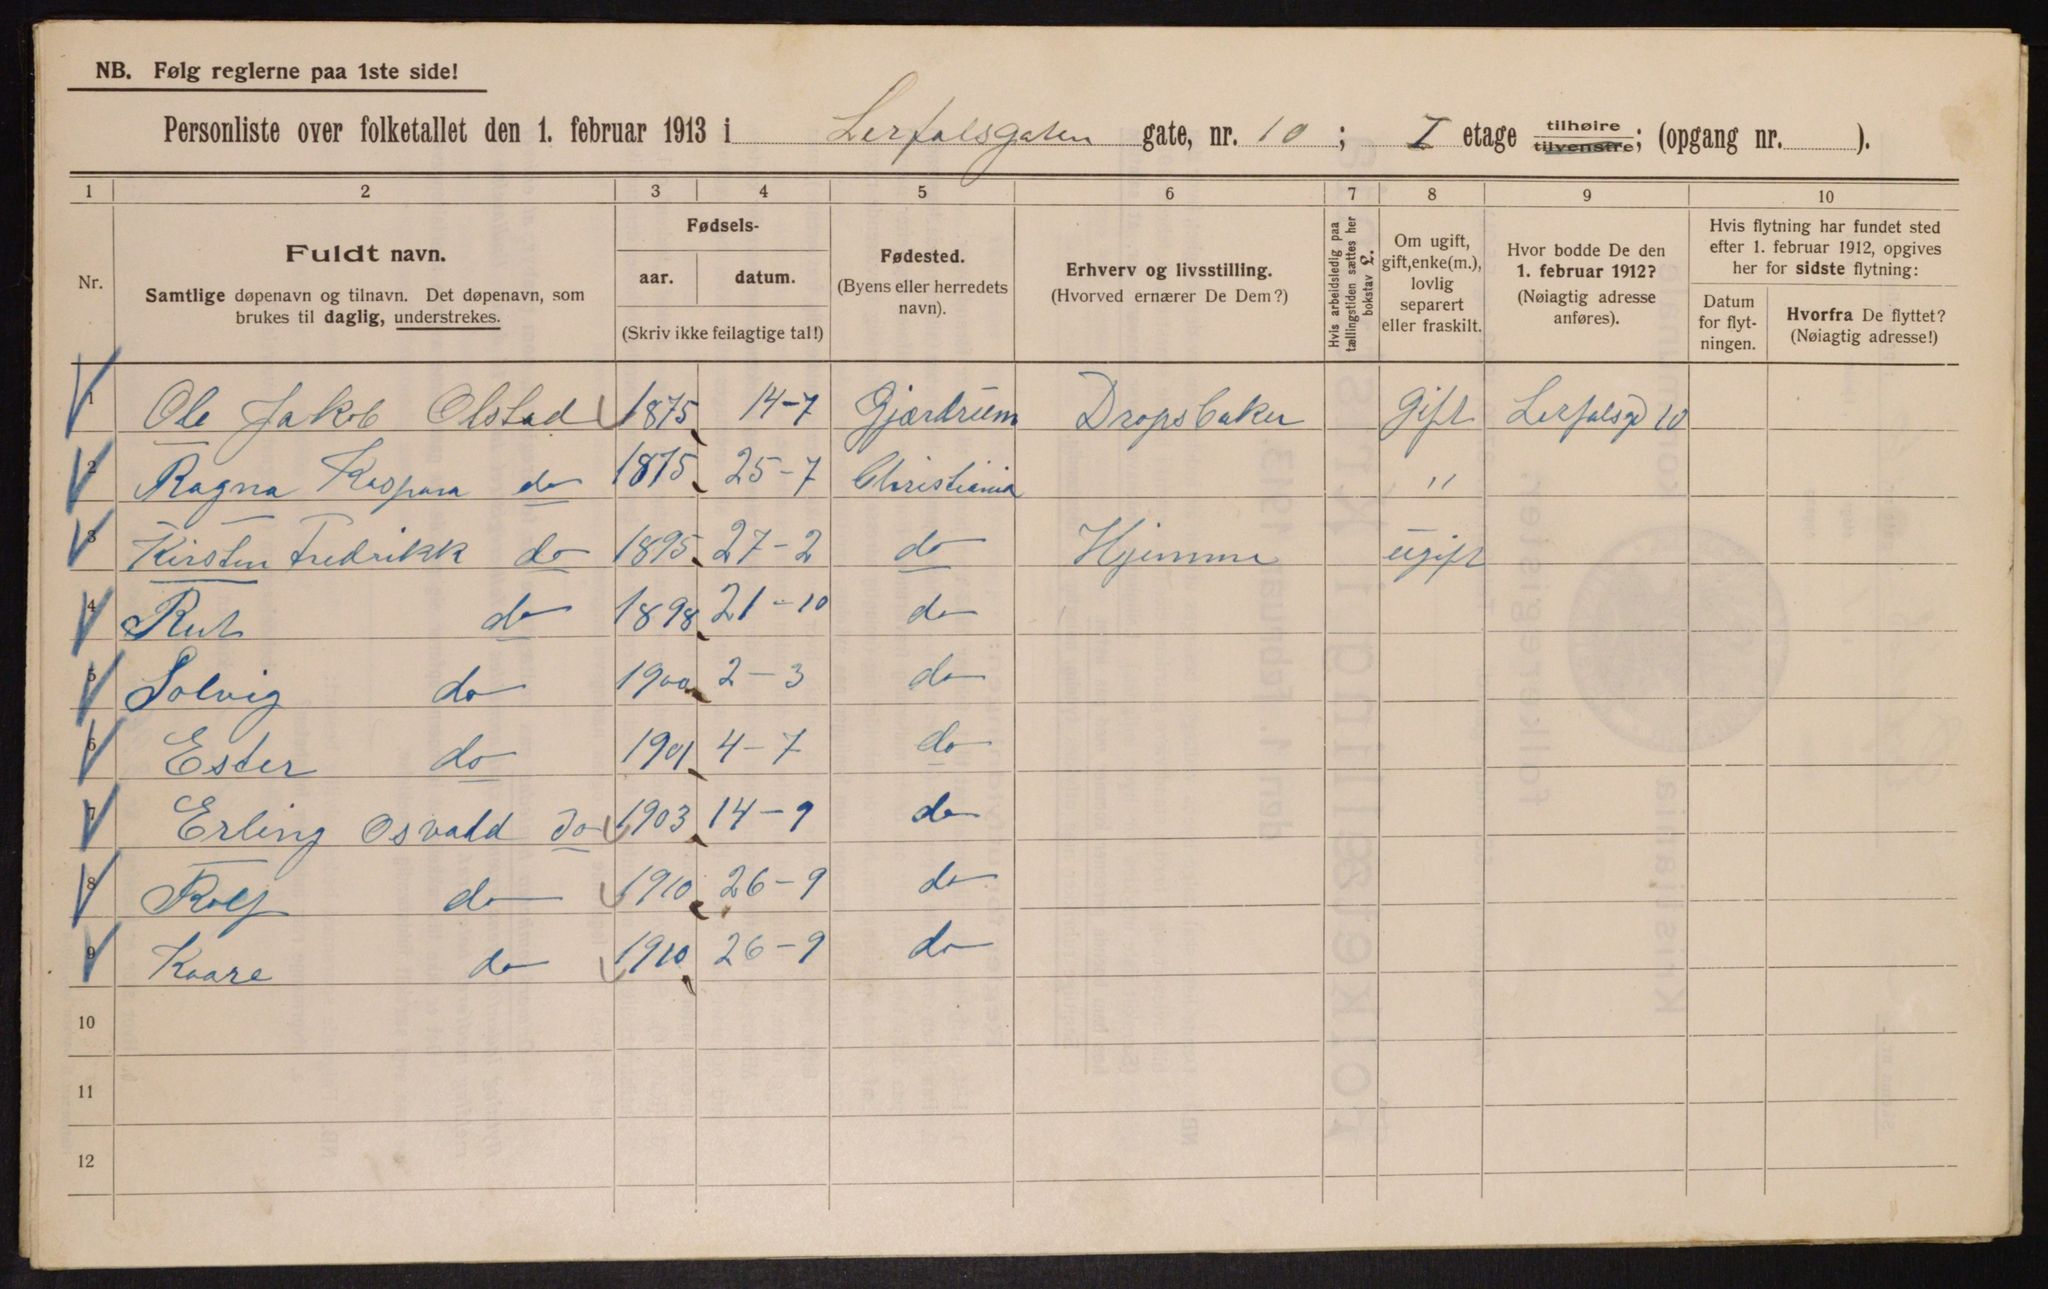 NB. Følg reglerne paa 1ste side!
Personliste over folketallet den 1. februar 1913 i Lerfalsgaten gate, nr. 10 ; I etage tilhøire tilvenstre; (opgang nr. ).
1 2 3 4 5 6 7 8 9 10
Nr.
Fuldt navn.
Samtlige døpenavn og tilnavn. Det døpenavn, som
brukes til daglig, understrekes.
Fødsels-
aar. datum.
(Skriv ikke feilagtige tal!)
Fødested.
(Byens eller herredets
navn).
Erhverv og livsstilling.
(Hvorved ernærer De Dem?)
Hvis arbeidsledig paa
tællingstiden sættes her
bokstav L.
Om ugift,
gift, enke(m.),
lovlig
separert
eller fraskilt.
Hvor bodde De den
1. februar 1912?
(Nøiagtig adresse
anføres).
Hvis flytning har fundet sted
efter 1. februar 1912, opgives
her for sidste flytning:
Datum
for flyt-
ningen.
Hvorfra De flyttet?
(Nøiagtig adresse!)
1 Ole Jakob Olstad 1875 14-7 Gjærdrum Dropsbaker gift Lerfalsg 10
2 Ragna Kaspara do 1875 25-7 Christiania "
3 Kirsten Fredrikk do 1895 27-2 do Hjemme ugift
4 Rut do 1898 21-10 do
5 Solvig do 1900 2-3 do
6 Ester do 1901 4-7 do
7 Erling Osvald do 1903 14-9 do
8 Rolf do 1910 26-9 do
9 Kaare do 1910 26-9 do
10
11
12